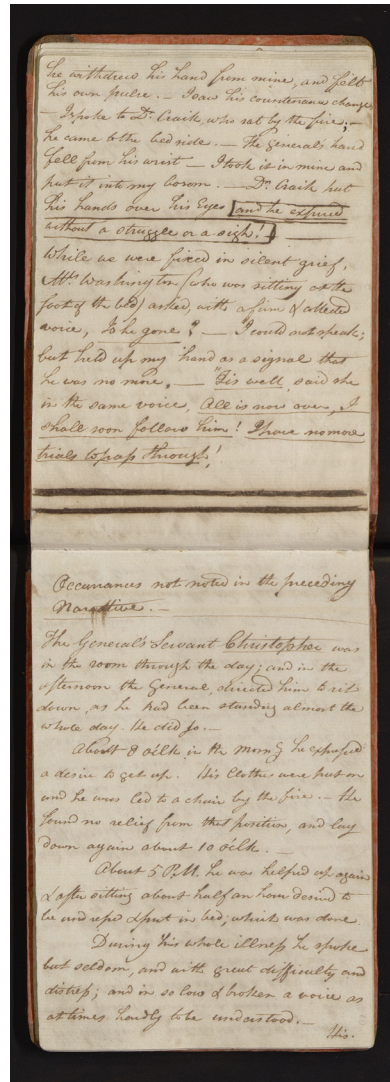 he withdrew his hand from mine, and felt
his own pulse. — I saw his countenance change
— I spoke to Dr. Craik, who sat by the fire; —
he came to the bed side. — The General's hand
fell from his wrist — I took it in mine and
put it into my bosom. — Dr. Craik put
his hands over his Eyes and he expired
without a struggle or a sigh!
While we were fixed in silent grief,
Mrs. Washington (who was sitting at the
foot of the bed) asked, with a firm & collected
voice, Is he gone? — I could not speak;
but held up my hand as a signal that
he was no more. — "Tis well, said she
in the same voice, All is now over, I
shall soon follow him! I have no more
trials to pass through!
Occurrances not noted in the preceding
Narrative. —
The General's Servant Christopher was
in the room through the day; and in the
afternoon the General directed him to sit
down, as he had been standing almost the
whole day. He did so. —
About 8 oClk in the morng he expressed
a desire to get up. His Clothes were put on
and he was led to a chair by the fire. — He
found no relief from that position, and lay
down again about 10 oClk. —
About 5 P.M. he was helped up again
& after sitting about half an hour desired to
be undressed & put in bed; which was done.
During his whole illness he spoke
but seldom, and with great difficulty and
distress; and in so low & broken a voice as
at times hardly to be understood. —
His.